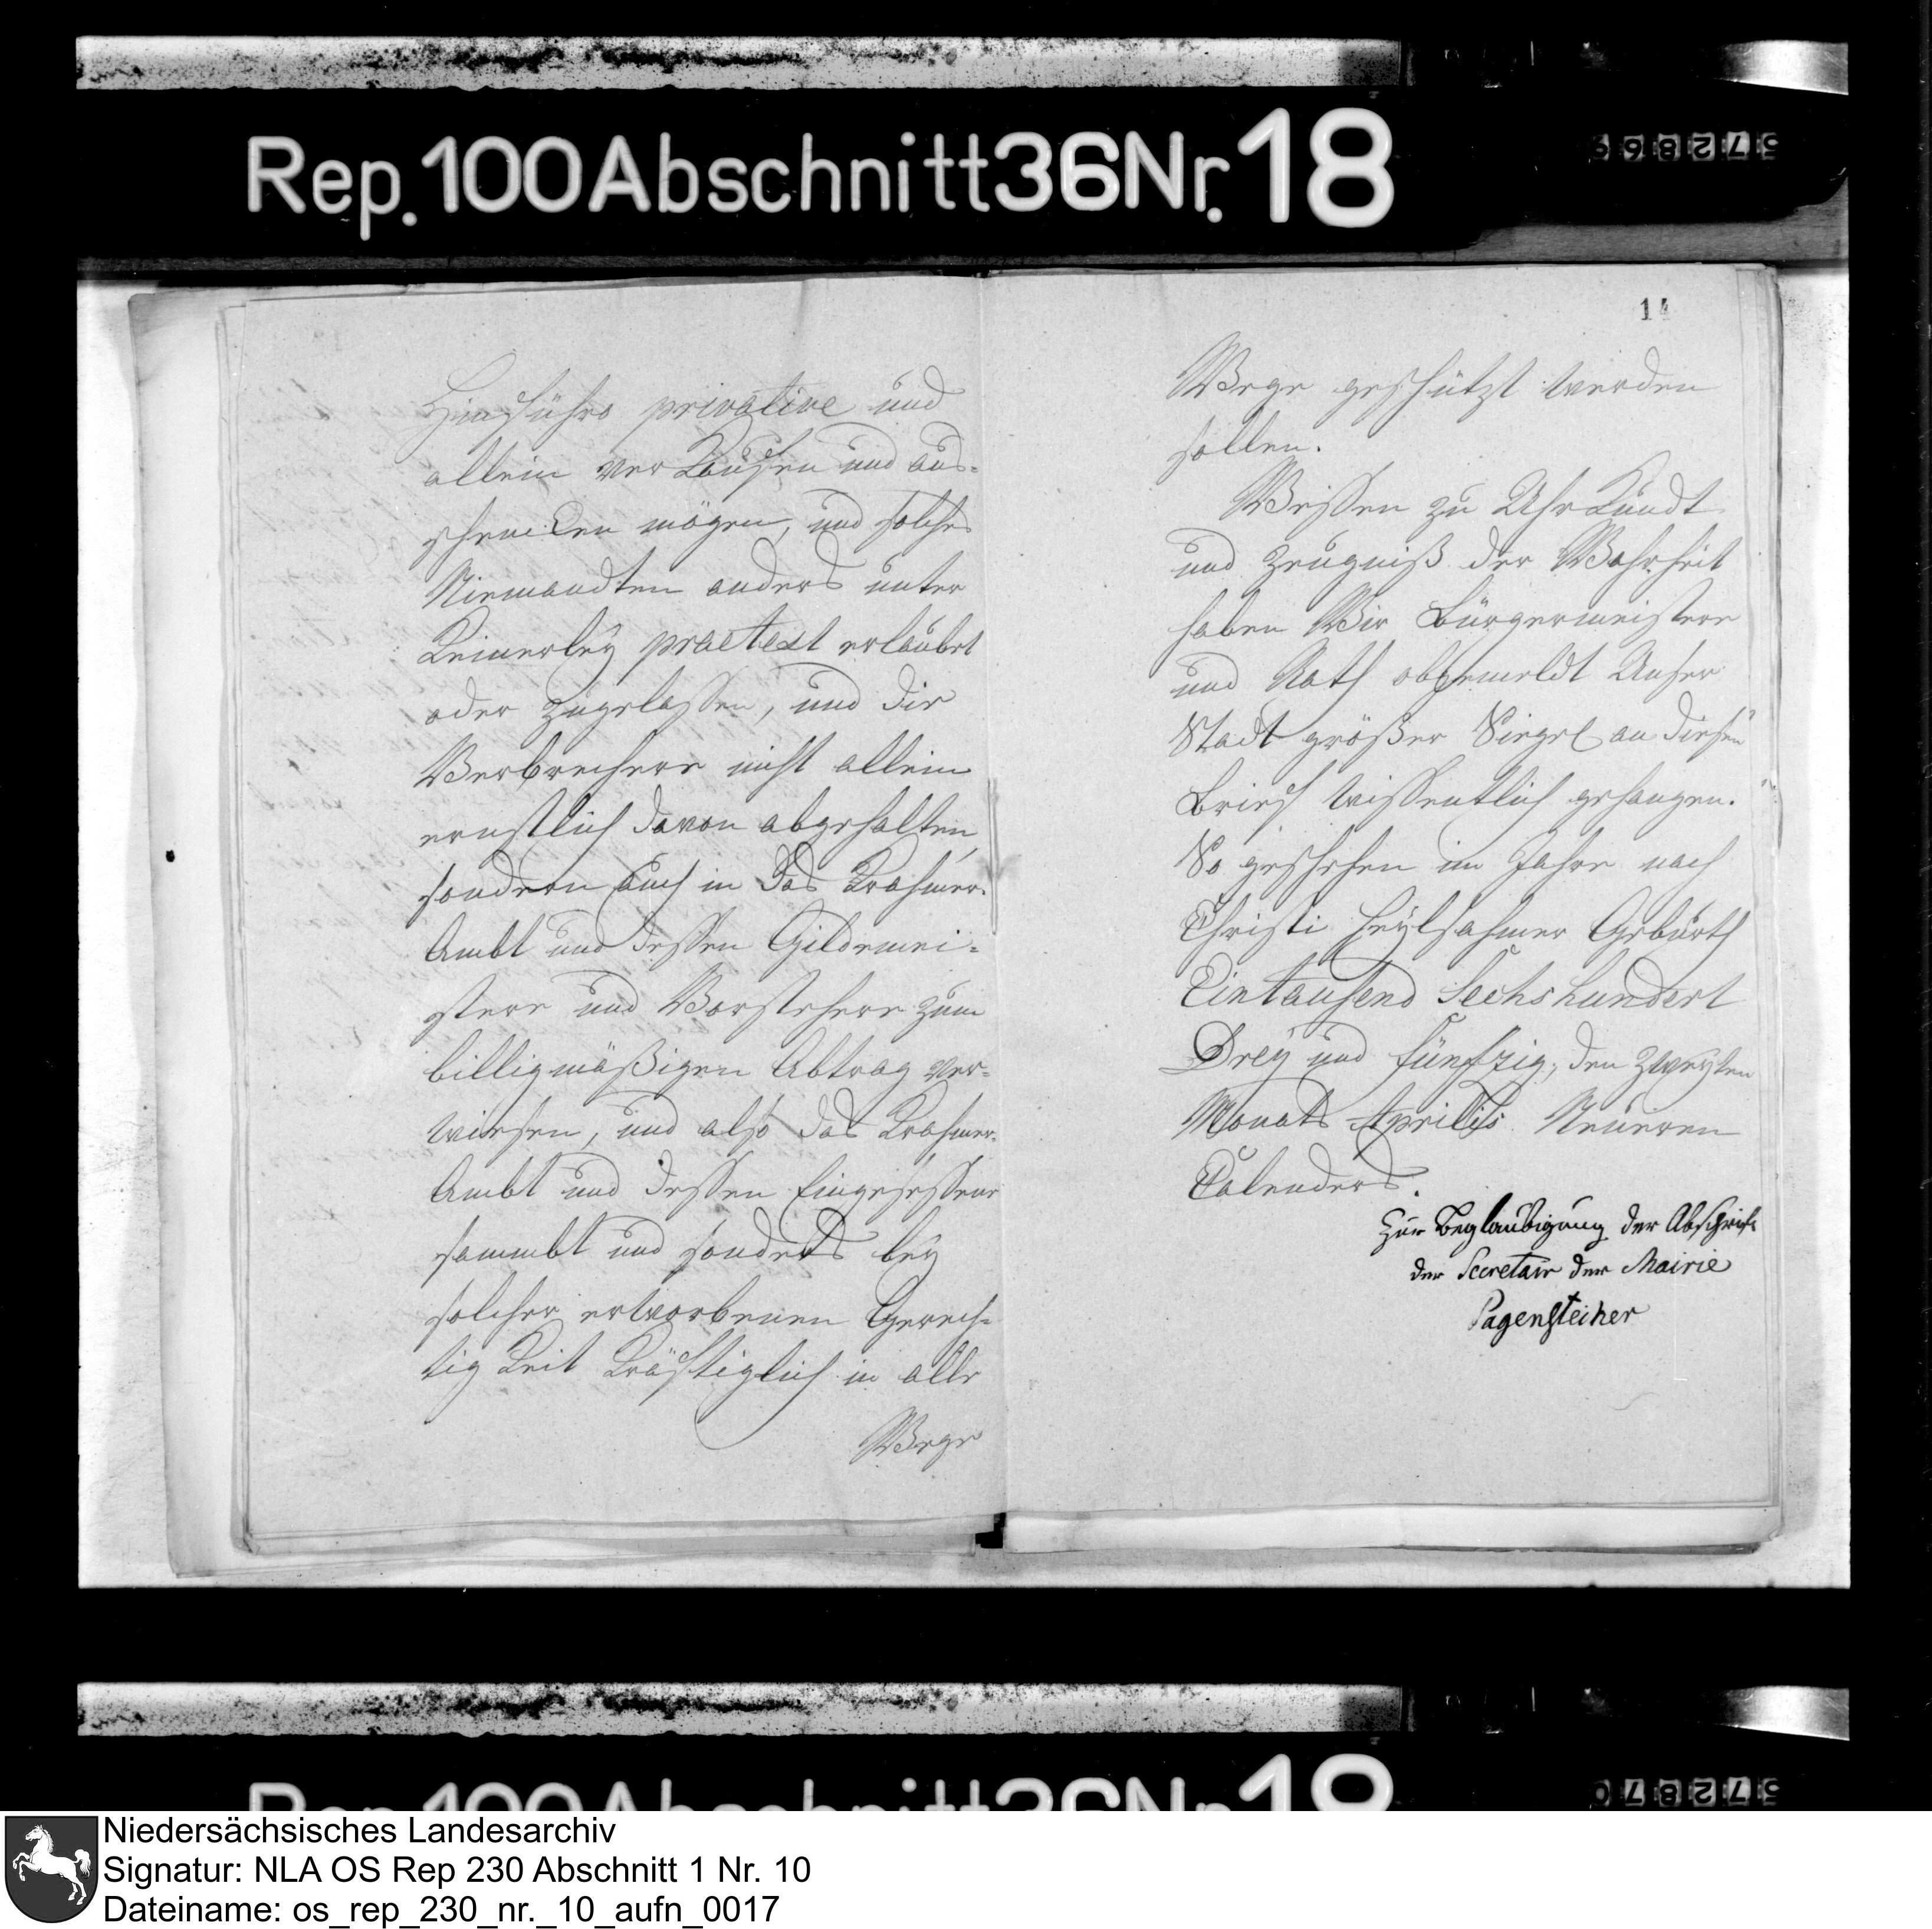 Rep. 100 Abschnitt 36 Nr. 18
572869
Hinführo privative und
allein verkaufen und aus-
schencken mögen, und solches
Niemandten anders unter
keinerley praetext erlaubet
oder zugelaßen, und die
Verbrechere nicht allein
ernstlich davon abgehalten
sondern auch in das Krahmer-
Ambt und deßen Gildemei-
stere und Vorstehere zum
billigmäßigen Abtrag ver-
wiesen, und also das Krahmer-
Ambt und deßen Eingeseßene
sammbt und sonders bey
solcher erworbenen Gerech-
tigkeit kräftiglich in alle
Wege
14
Wege geschützt werden
sollen.
Weßen zu Uhrkundt
und Zeugniß der Wahrheit
haben Wir Bürgermeistere
und Rath obgemeldt Unser
Stadt größer Siegel an diesen
Brief wißentlich gehangen.
So geschehen im Jahre nach
Christi heylsahmer Gebürth
Eintausend Sechshundert
Drey und fünfzig, den Zweyten
Monats Aprilis Neueren
Calenders.
Zur Beglaubigung der Abschrift
der Secretair der Mairie
Pagenstecher
Rep. 100 Abschnitt 36 Nr. 18
572870
Niedersächsisches Landesarchiv
Signatur: NLA OS Rep 230 Abschnitt 1 Nr. 10
Dateiname: os_rep_230_nr._10_aufn_0017